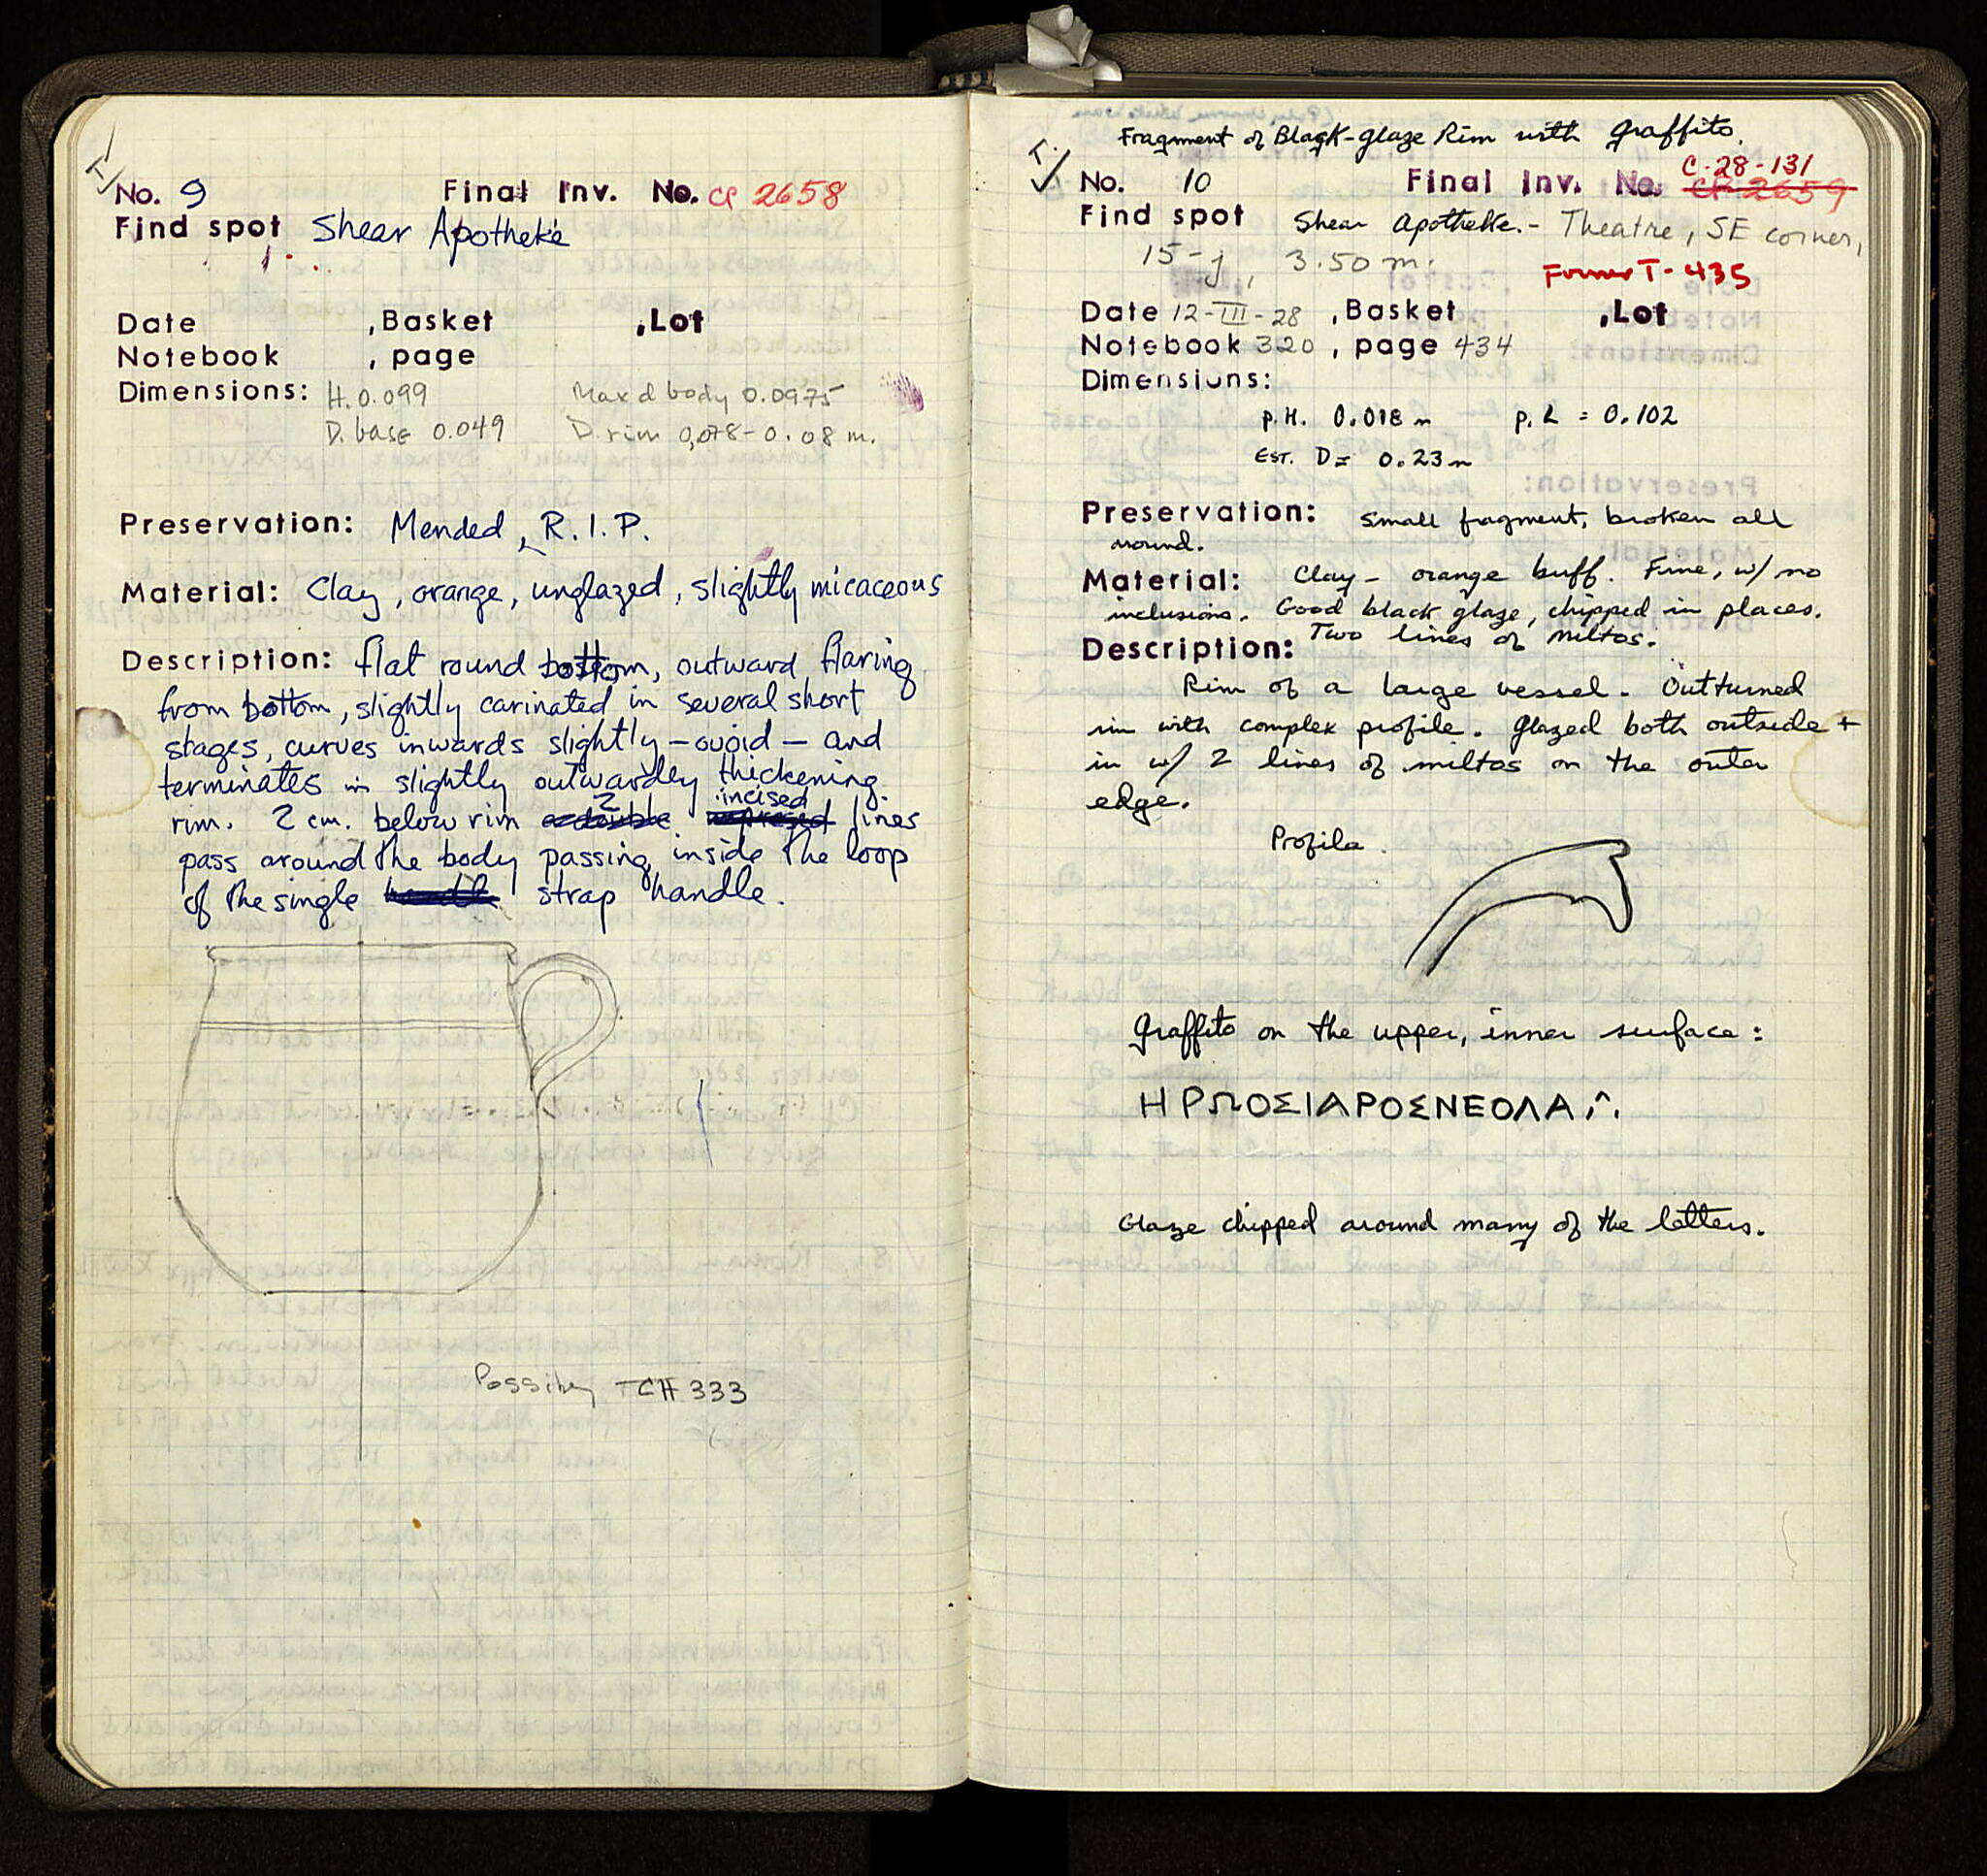 T.
No. 9 Final Inv. No. CP 2658
Find spot Shear Apotheke
Date , Basket , Lot
Notebook , page
Dimensions: H. 0.099 Max d body 0.0975
D. base 0.049 D. rim 0,078-0.08 m.
Preservation: Mended, R.I.P.
Material: Clay, orange, unglazed, slightly micaceous
Description: flat round bottom, outward flaring
from bottom, slightly carinated in several short
stages, curves inwards slightly - ovoid - and
terminates in slightly outwardly thickening
rim. 2 cm. below rim 2 incised lines
pass around the body passing inside the loop
of the single strap handle.
Possibly TCH 333
Fragment of Black-glaze Rim with graffito.
T.
C-28-131
No. 10 Final Inv. No. CP 2659
Find spot Shear Apotheke. - Theatre, SE corner,
15-j, 3.50 m.
Former T-435
Date 12-III-28 , Basket , Lot
Notebook 320 , page 434
Dimensions:
p.H. 0.018 m p.L = 0.102
EST. D= 0.23 m
Preservation: Small fragment, broken all
around.
Material: Clay - orange buff. Fine, w/ no
inclusions. Good black glaze, chipped in places.
Two lines of miltos.
Description:
Rim of a large vessel. Outturned
rim with complex profile. Glazed both outside +
in w/ 2 lines of miltos on the outer
edge.
Profile.
Graffito on the upper, inner surface:
ΗΡΩΟΣΙΑΡΟΣΝΕΟΛΑ
Glaze chipped around many of the letters.